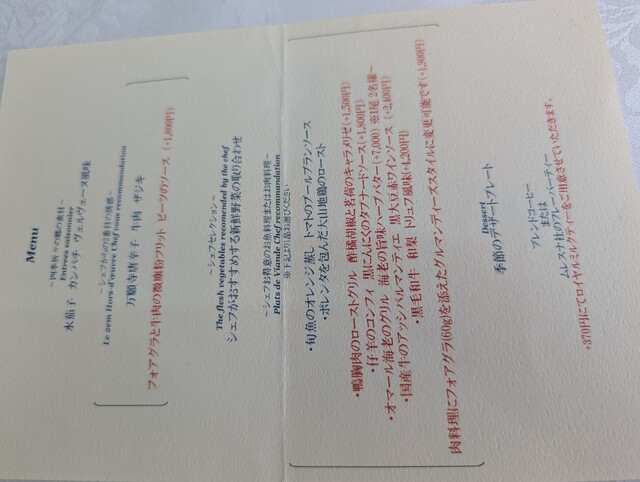 Menu
～四季折々の畑の素材～
Entrées saisonnier
水茄子 カンパチ ヴェルヴェーヌ風味
～シェフからの2番目の誘惑～
Le 2em Hors-d'œuvre Chef vous recommandation
万願寺唐辛子 牛肉 ザジキ
フォアグラと牛肉の微塵粉フリット ビーツのソース (+1,800円)
～シェフセレクション～
The flesh vegetables recomended by the chef
シェフがおすすめする新鮮野菜の取り合わせ
～シェフお得意のお魚料理またはお肉料理～
Plats de Viande Chef recommandation
※下記より1品お選びください
・旬魚のオレンジ蒸し トマトのブールブランソース
・ポレンタを包んだ大山地鶏のロースト
・鴨胸肉のローストグリル 酢橘胡椒と茗荷のキャラメリゼ (+1,500円)
・仔羊のコンフィ 黒にんにくのタプナードソース(+1,800円)
・オマール海老のグリル 海老の旨味ハーブバター (+7,000) ※1尾 2名様～
・国産牛のアッシパルマンティエ 黒大豆赤ワインソース (+2,400円)
・黒毛和牛 和梨 トリュフ風味(+4,200円)
肉料理にフォアグラ(60g)を添えたグルマンディーズスタイルに変更可能です(+1,900円)
Dessert
季節のデザートプレート
ブレンドコーヒー
または
ムレスナ社のフレーバーティー
+370円にてロイヤルミルクティーをご用意させていただきます。